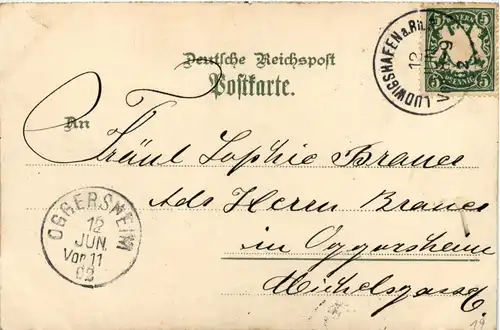 Deutsche Reichspost
Postkarte.
LUDWIGSHAFEN a. Rh.
12
9
BAYERN
5 5
An
Fräul Sophie Braner
Ads Herren Braner
in Oggersheim
Michelsgasse
OGGERSHEIM
12
JUN.
Vor 11
02
19